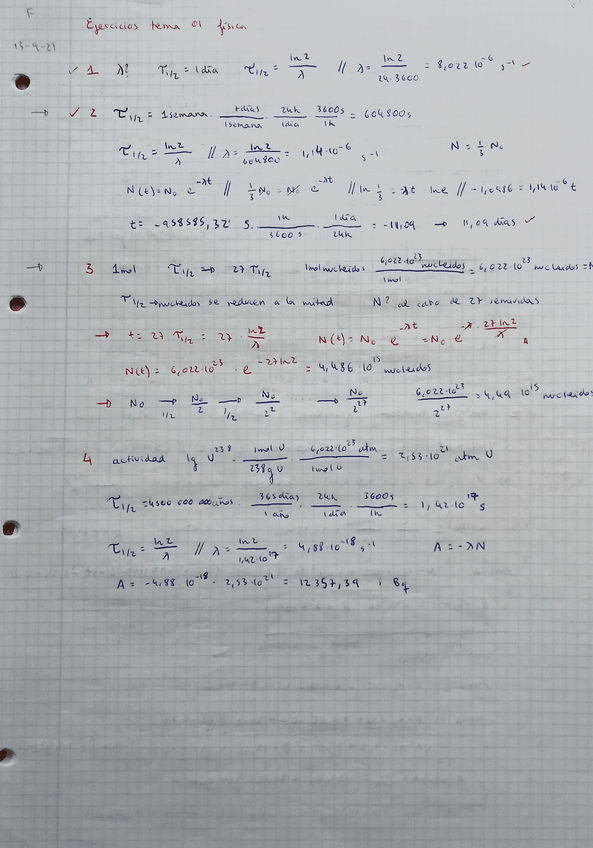 F
Ejercicios tema 01 física
13-4-21
✓ 1 λ? T1/2 = 1 día T1/2 = ln 2 / λ // λ = ln 2 / 24·3600 = 8,022 10^-6 s^-1 ✓
→ ✓ 2 T1/2 = 1 semana · 7 días / 1 semana · 24h / 1 día · 3600s / 1h = 604800s
T1/2 = ln 2 / λ // λ = ln 2 / 604800 = 1,14·10^-6 s^-1 N = 1/3 N0
N(t) = N0 e^-λt // 1/3 N0 = N0 · e^-λt // ln 1/3 = -λt · ln e // -1,0986 = 1,14·10^-6 t
t = -958585,32 s · 1h / 3600 s · 1 día / 24h = -11,09 → 11,09 días ✓
→ 3 1 mol T1/2 → 27 T1/2 1mol nucleidos · 6,022·10^23 nucleidos / 1mol = 6,022·10^23 nucleidos = N
T1/2 → nucleidos se reducen a la mitad N? al cabo de 27 semividas
→ t = 27 T1/2 = 27 · ln 2 / λ N(t) = N0 e^-λt = N0 · e^-λ · 27 ln 2 / λ
N(t) = 6,022·10^23 · e^-27 ln 2 = 4,486 10^15 nucleidos
→ N0 →1/2 N0/2 →1/2 N0/2^2 → N0/2^27 6,022·10^23 / 2^27 = 4,49 10^15 nucleidos
4 actividad 1g U^238 · 1mol U / 238 g U · 6,022·10^23 atm / 1mol U = 2,53·10^21 atm U
T1/2 = 4500 000 000 años · 365 días / 1 año · 24h / 1 día · 3600s / 1h = 1,42·10^17 s
T1/2 = ln 2 / λ // λ = ln 2 / 1,42·10^17 = 4,88·10^-18 s^-1 A = -λN
A = -4,88 10^-18 · 2,53·10^21 = 12357,39 Bq